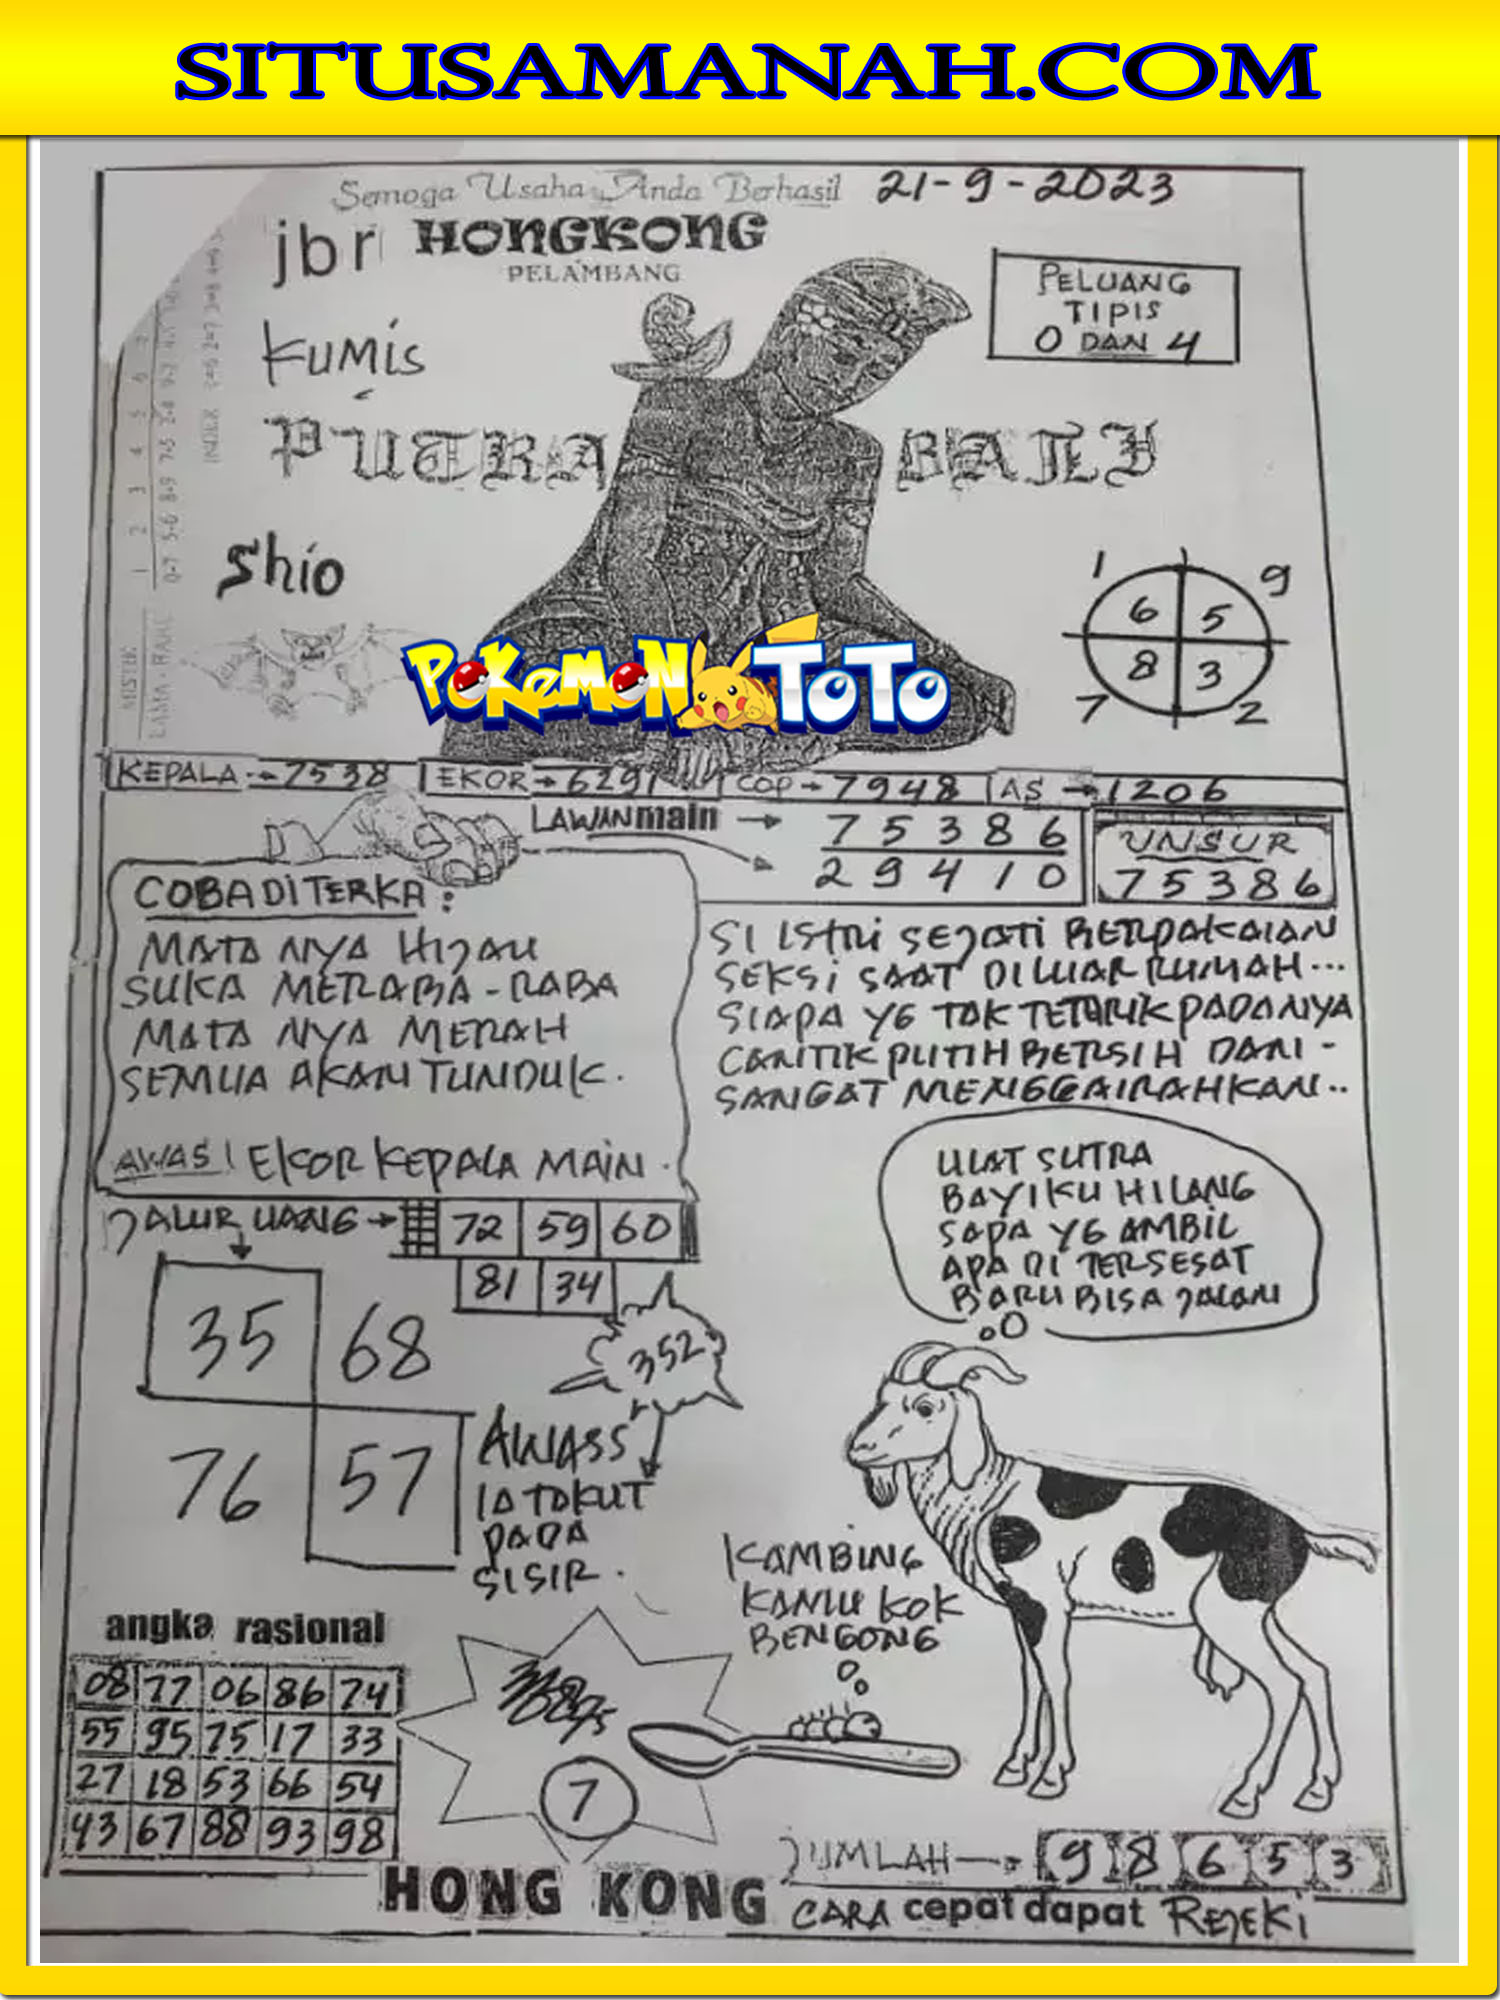 SITUSAMANAH.COM
Semoga Usaha Anda Berhasil 21-9-2023
jbr HONGKONG
PELAMBANG
PELUANG
TIPIS
0 DAN 4
KUMIS
PUTRA BALI
Shio
POKEMON TOTO
1 9
6 5
8 3
7 2
KEPALA → 7538 EKOR → 6291 COP → 7948 AS → 1206
LAWAN main → 7 5 3 8 6
2 9 4 1 0
UNSUR
7 5 3 8 6
COBA DI TERKA :
MATA NYA HIJAU
SUKA MERABA - RABA
MATA NYA MERAH
SEMUA AKAN TUNDUK.
AWAS! EKOR KEPALA MAIN.
SI ISTRI SEJATI BERPAKAIAN
SEKSI SAAT DI LUAR RUMAH...
SIAPA YG TAK TETARIK PADANYA
CANTIK PUTIH BERSIH DARI -
SANGAT MENGGAIRAHKAN..
ULAT SUTRA
BAYIKU HILANG
SAPA YG AMBIL
APA DI TERSESAT
BARU BISA JALAN
JALUR UANG → 72 59 60
81 34
35 68
76 57
352
AWASS
IA TAKUT
PADA
SISIR.
KAMBING
KAMU KOK
BENGONG
angka rasional
08 77 06 86 74
55 95 75 17 33
27 18 53 66 54
43 67 88 93 98
7
JUMLAH → 9 8 6 5 3
HONG KONG CARA cepat dapat REJEKI